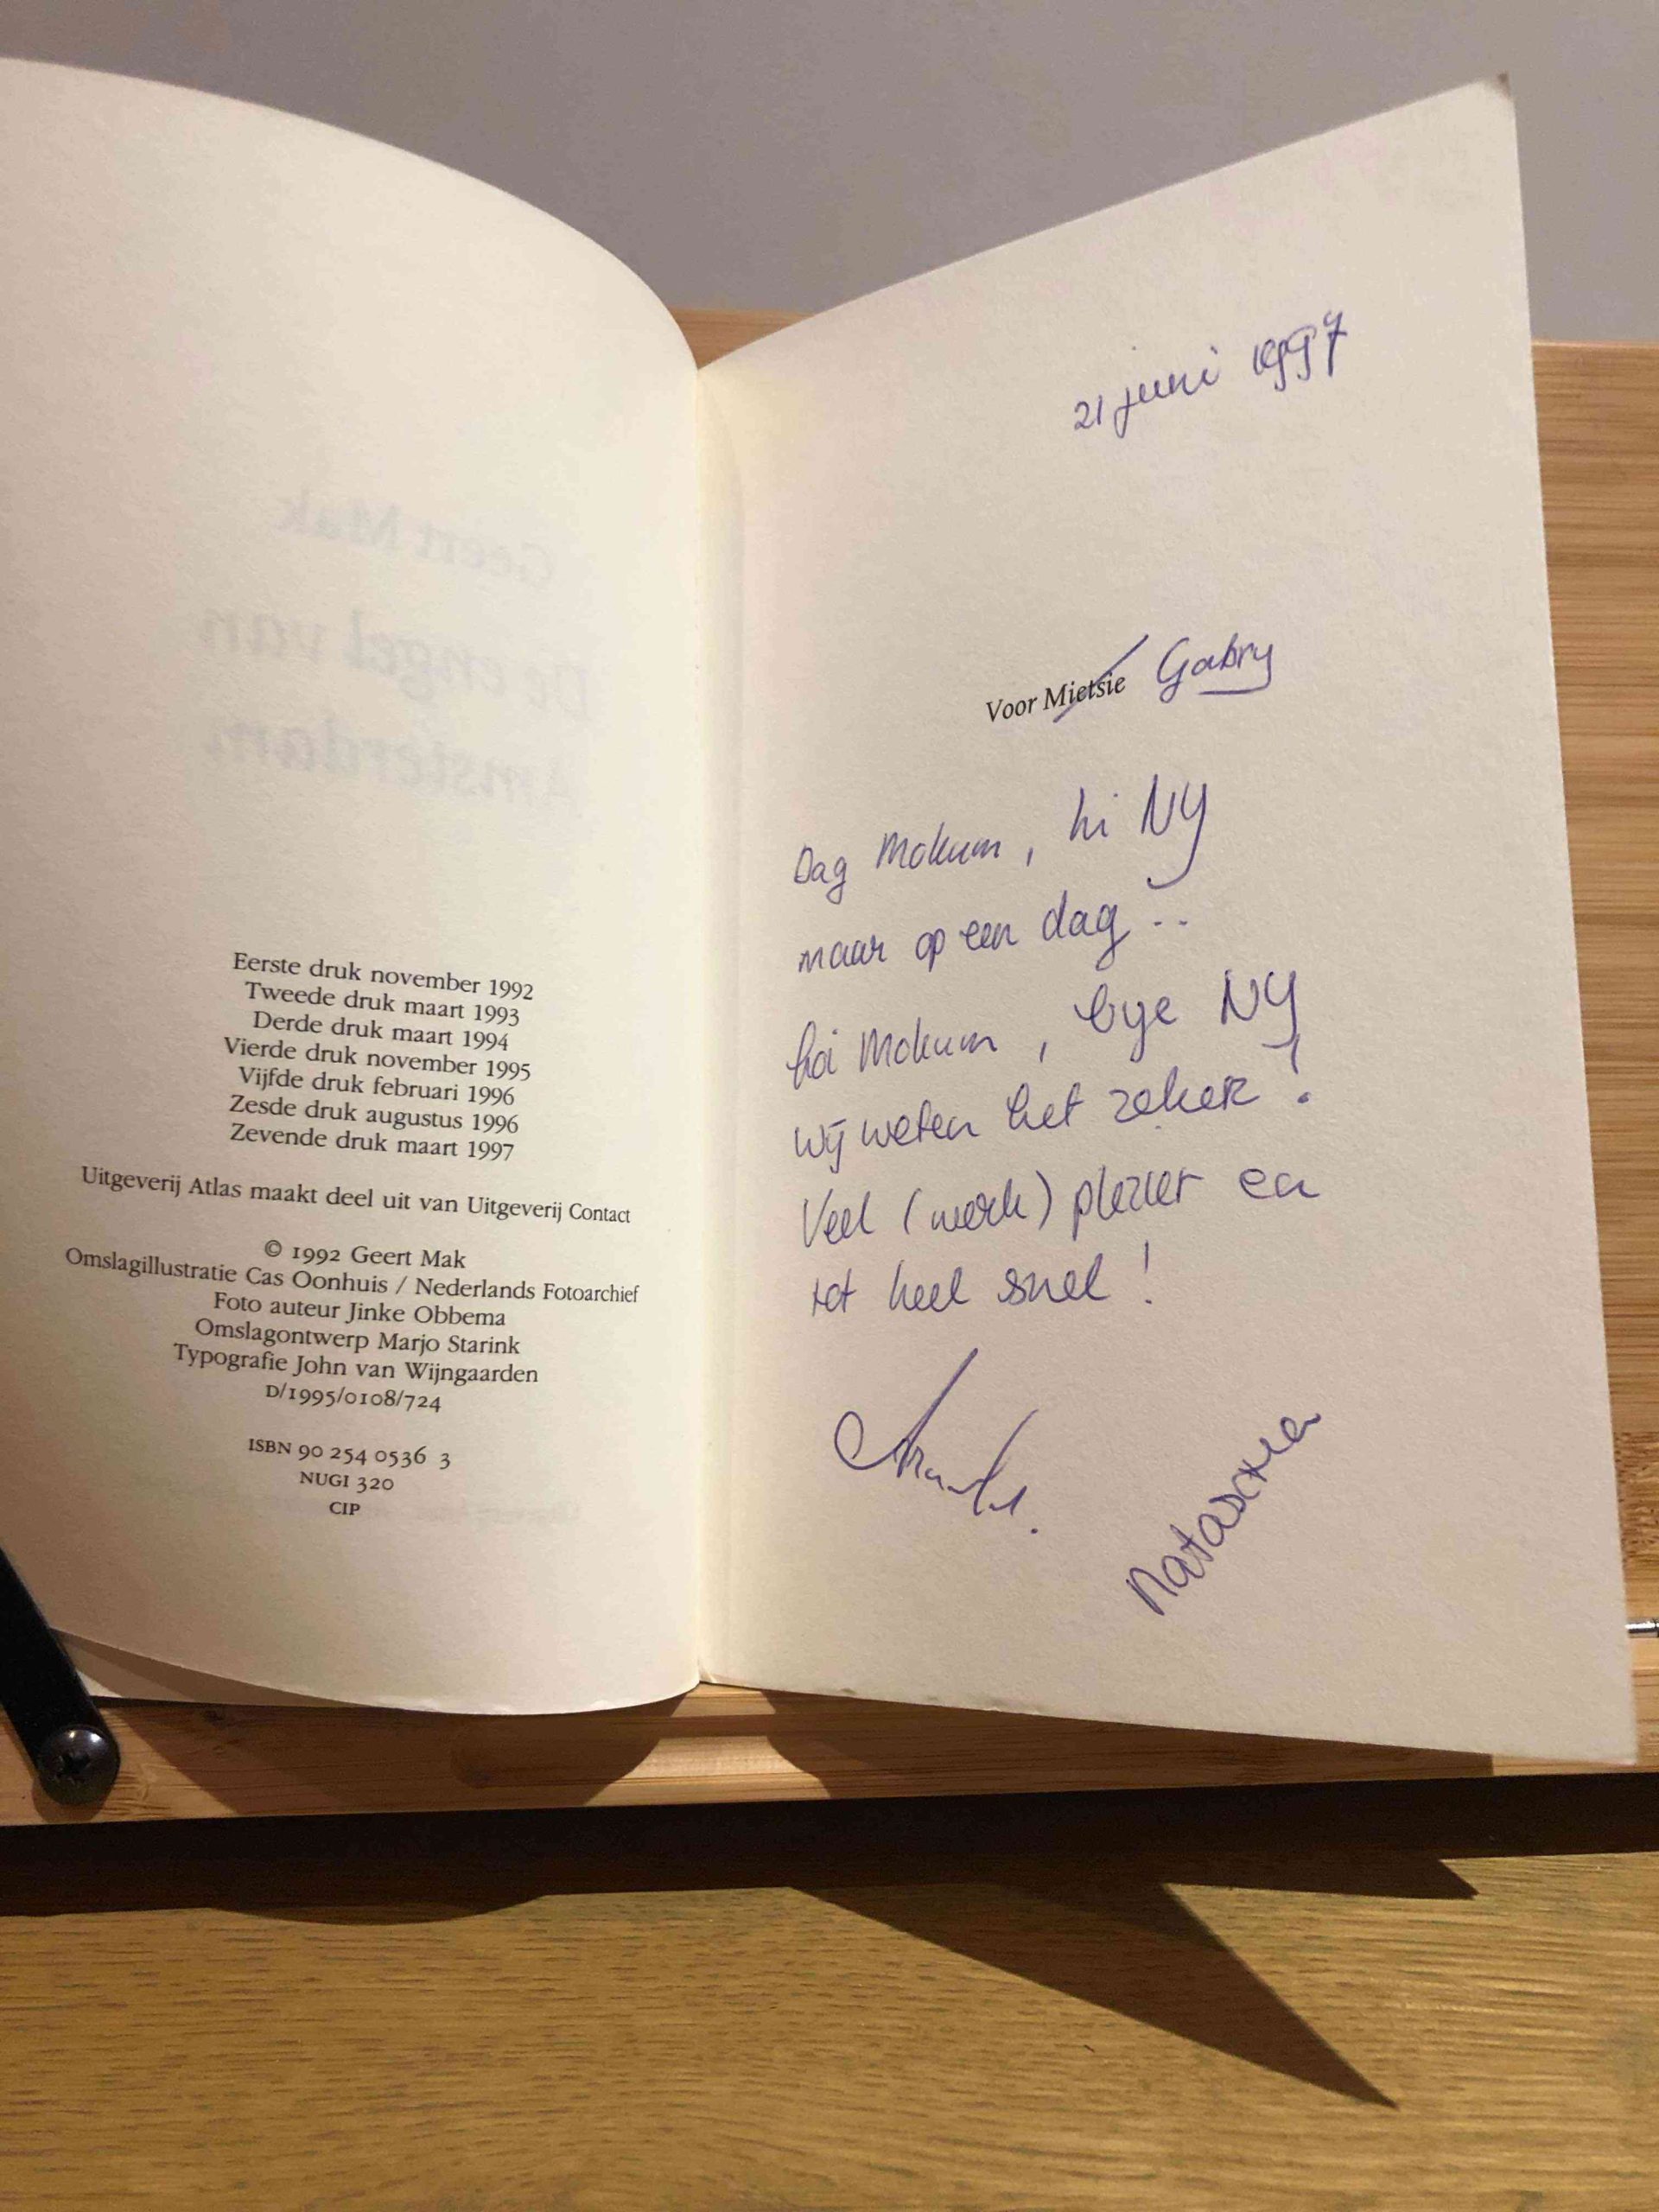 Geert Mak
De engel van
Amsterdam
Eerste druk november 1992
Tweede druk maart 1993
Derde druk maart 1994
Vierde druk november 1995
Vijfde druk februari 1996
Zesde druk augustus 1996
Zevende druk maart 1997
Uitgeverij Atlas maakt deel uit van Uitgeverij Contact
© 1992 Geert Mak
Omslagillustratie Cas Oonhuis / Nederlands Fotoarchief
Foto auteur Jinke Obbema
Omslagontwerp Marjo Starink
Typografie John van Wijngaarden
D/1995/0108/724
ISBN 90 254 0536 3
NUGI 320
CIP
21 juni 1997
Voor Mietsie Gabry
Dag Mokum, hi NY
maar op een dag ..
hoi Mokum, bye NY
wij weten het zeker!
Veel (werk) plezier en
tot heel snel!
Natascha